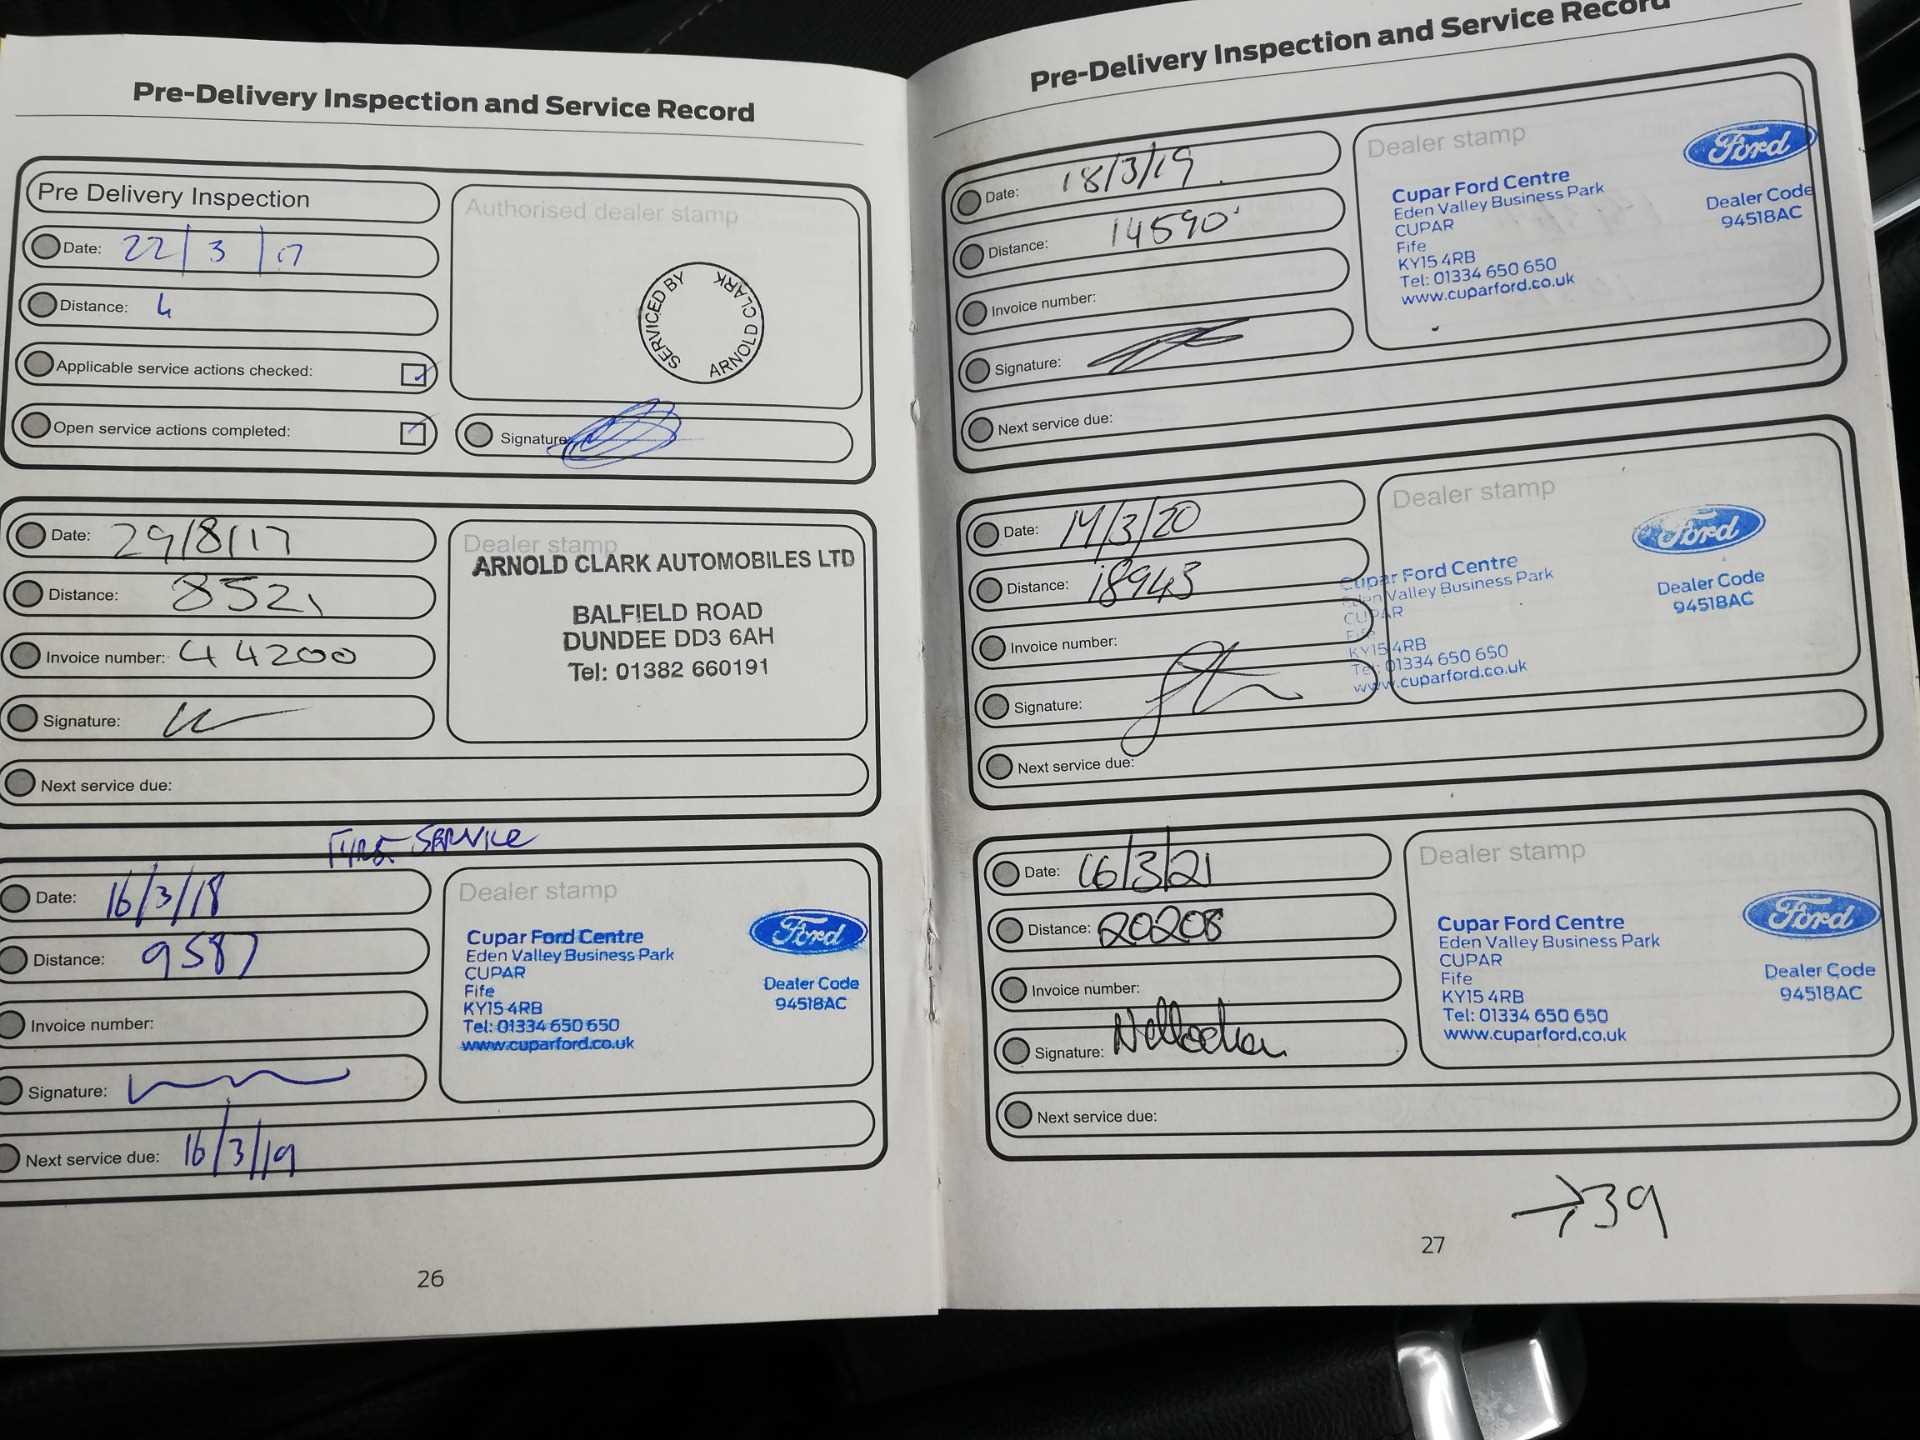 Pre-Delivery Inspection and Service Record
Pre Delivery Inspection
Date: 22/3/17
Distance: 4
Applicable service actions checked:
Open service actions completed:
Authorised dealer stamp
SERVICED BY ARNOLD CLARK ARNOLD CLARK
Signature
Date: 29/8/17
Distance: 8521
Invoice number: 44200
Signature:
Next service due:
Dealer stamp
ARNOLD CLARK AUTOMOBILES LTD
BALFIELD ROAD
DUNDEE DD3 6AH
Tel: 01382 660191
SERVICE
Date: 16/3/18
Distance: 9587
Invoice number:
Signature:
Next service due: 16/3/19
Dealer stamp
Cupar Ford Centre
Eden Valley Business Park
CUPAR
Fife
KY15 4RB
Tel: 01334 650 650
www.cuparford.co.uk
Ford
Dealer Code
94518AC
26
Pre-Delivery Inspection and Service Record
Date: 18/3/19
Distance: 14590
Invoice number:
Signature:
Next service due:
Dealer stamp
Cupar Ford Centre
Eden Valley Business Park
CUPAR
Fife
KY15 4RB
Tel: 01334 650 650
www.cuparford.co.uk
Ford
Dealer Code
94518AC
Date: 14/3/20
Distance: 18943
Invoice number:
Signature:
Next service due:
Dealer stamp
Cupar Ford Centre
Eden Valley Business Park
CUPAR
Fife
KY15 4RB
Tel: 01334 650 650
www.cuparford.co.uk
Ford
Dealer Code
94518AC
Date: 16/3/21
Distance: 20208
Invoice number:
Signature:
Next service due:
Dealer stamp
Cupar Ford Centre
Eden Valley Business Park
CUPAR
Fife
KY15 4RB
Tel: 01334 650 650
www.cuparford.co.uk
Ford
Dealer Code
94518AC
→39
27